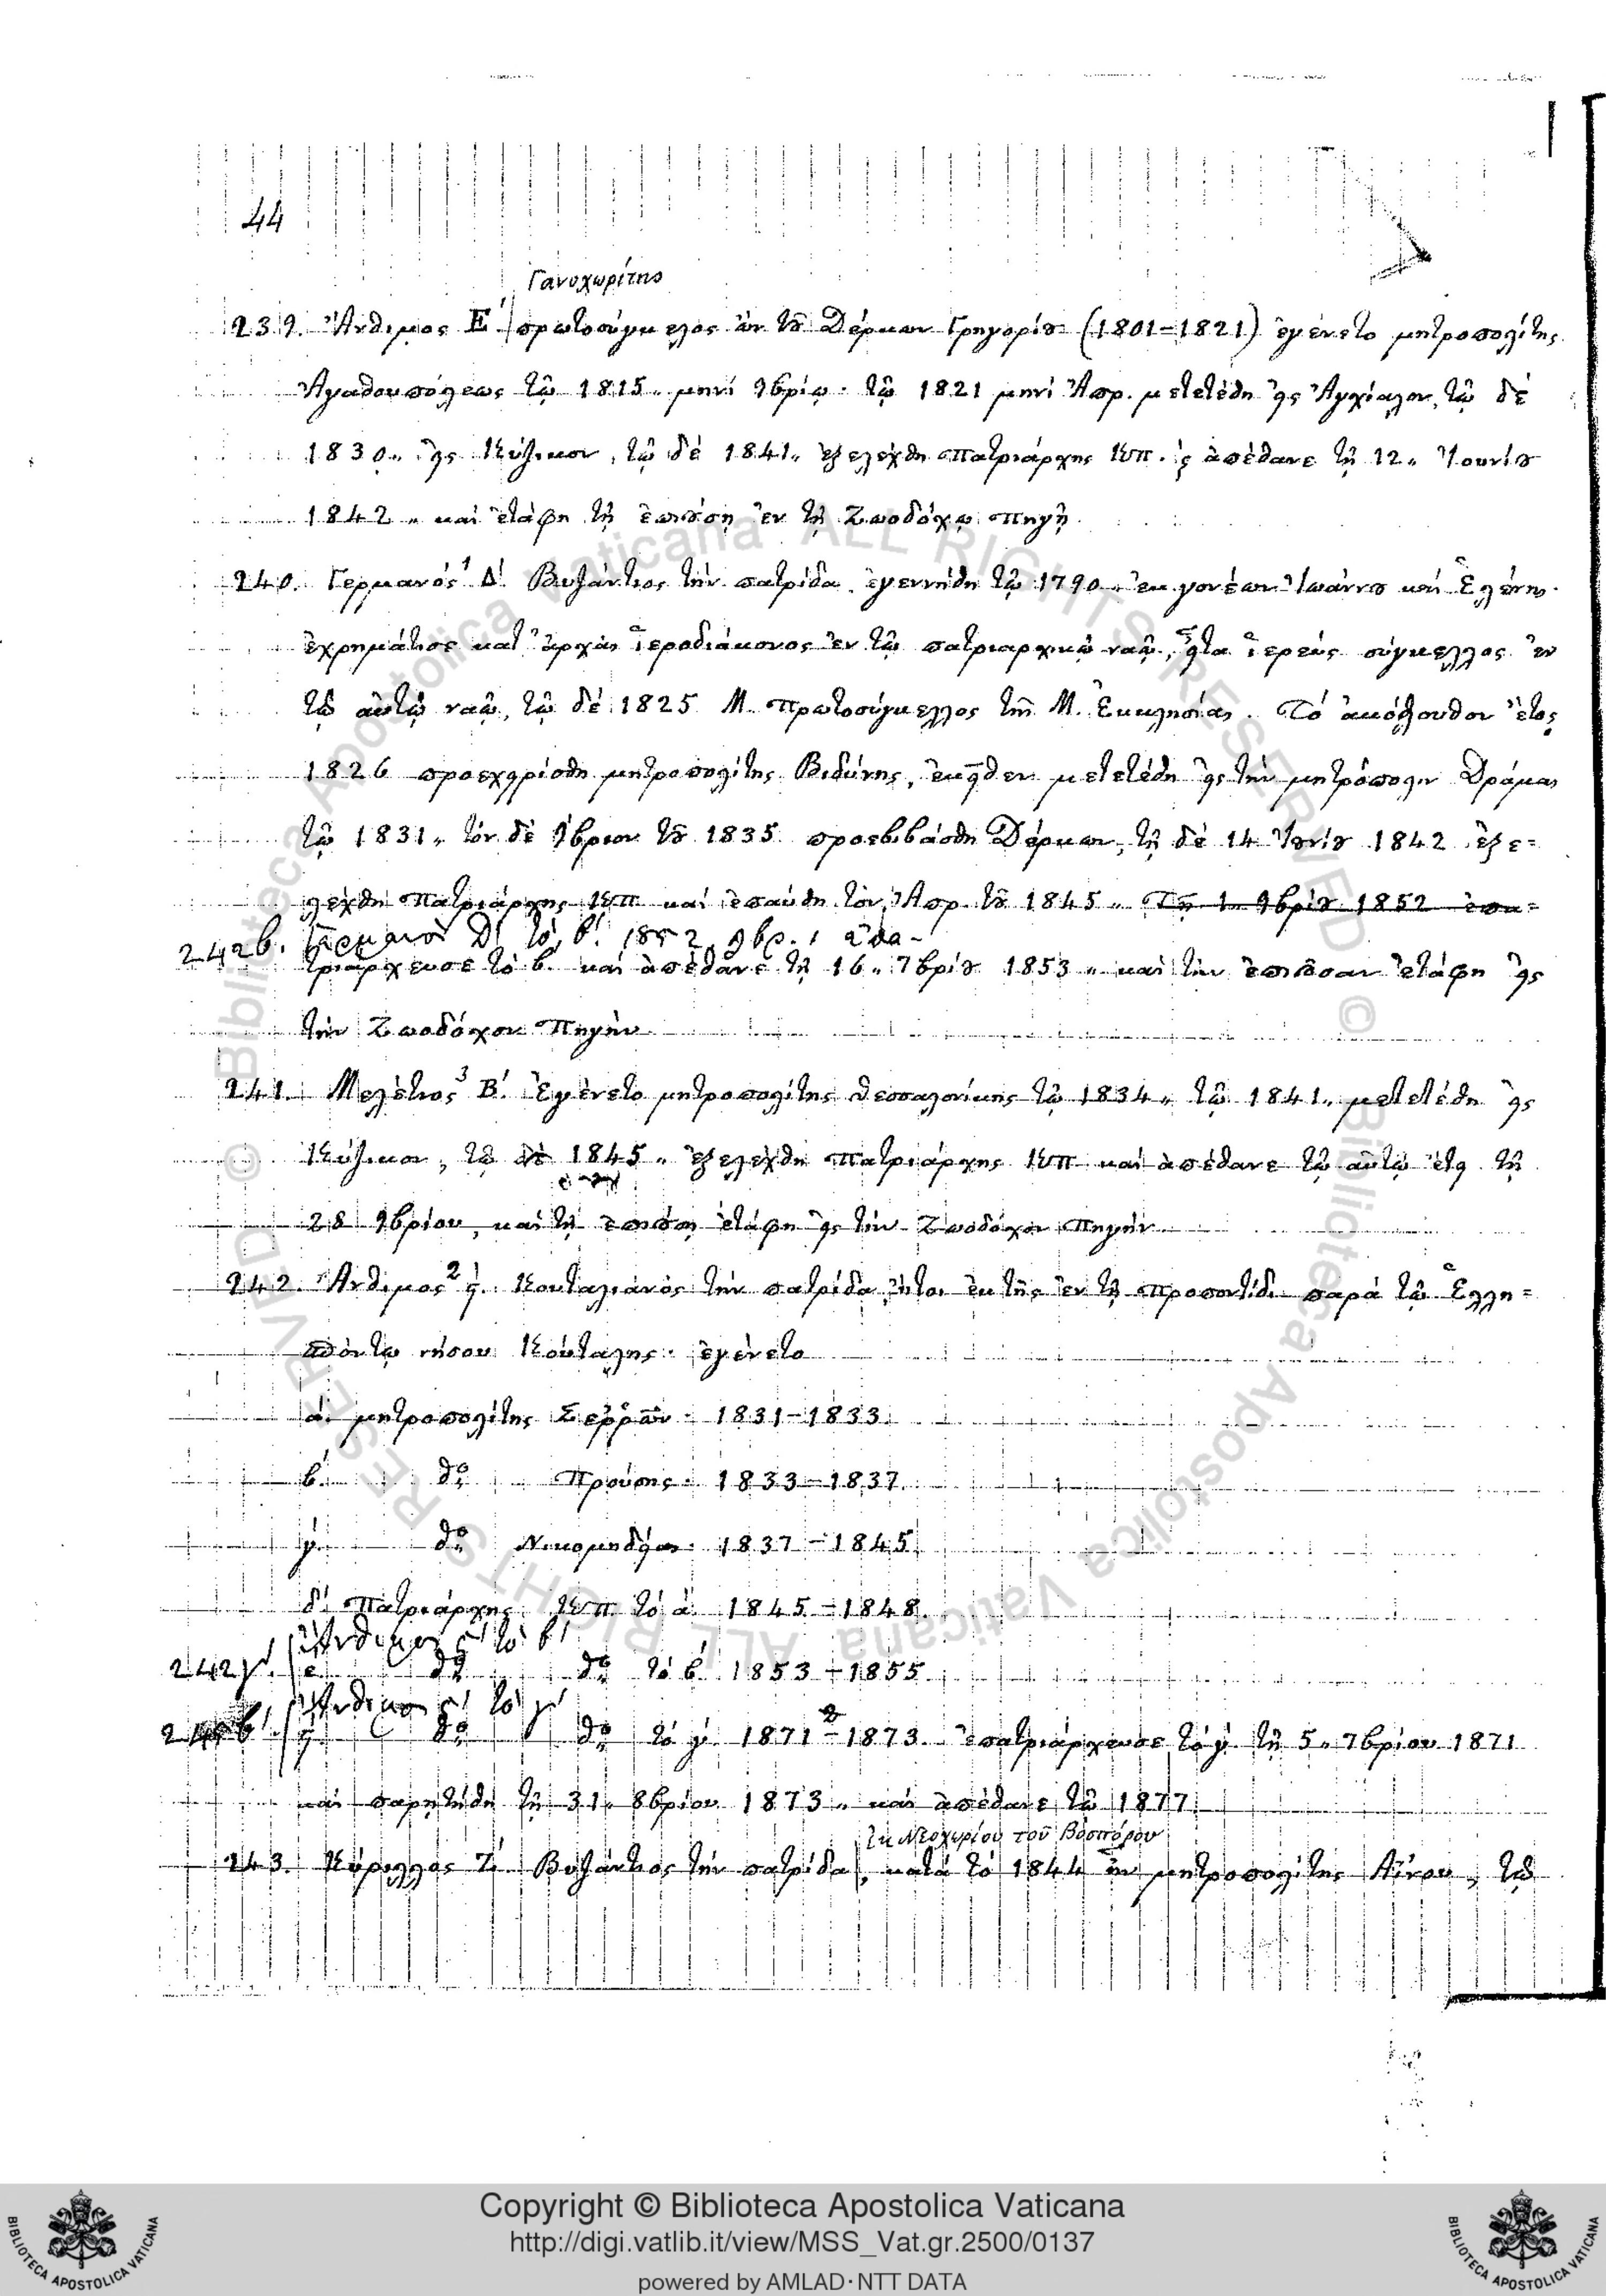 44
Γανοχωρίτης
239. Ἄνθιμος Ε΄ πρωτοσύγκελος ὢν τοῦ Δέρκων Γρηγορίου (1801-1821) ἐγένετο μητροπολίτης
Ἀγαθουπόλεως τῷ 1815 „ μηνί 9βρίῳ · τῷ 1821 μηνί Ἀπρ. μετετέθη εἰς Ἀγχίαλον, τῷ δέ
1830 „ εἰς Κύζικον, τῷ δέ 1841 „ ἐξελέχθη Πατριάρχης Κπ. ϗ ἀπέθανε τῇ 12 „ Ἰουνίου
1842 „ καί ἐτάφη τῇ ἐπιούσῃ ἐν τῇ Ζωοδόχῳ Πηγῇ.
240. Γερμανός 1 Δ΄. Βυζάντιος τήν πατρίδα, ἐγεννήθη τῷ 1790 „ ἐκ γονέων Ἰωάννου καί Ἑλένης.
ἐχρημάτισε κατ' ἀρχάς ἱεροδιάκονος ἐν τῷ πατριαρχικῷ ναῷ, εἶτα ἱερεύς σύγκελλος ἐν
τῷ αὐτῷ ναῷ, τῷ δέ 1825 Μ. Πρωτοσύγκελλος τῆς Μ. Ἐκκλησίας. Τό ἀκόλουθον ἔτος
1826 προεχειρίσθη μητροπολίτης Βιδύνης, ἐκεῖθεν μετετέθη εἰς τήν μητρόπολιν Δράμας
τῷ 1831 „ τόν δέ 9βριον τοῦ 1835 προεβιβάσθη Δέρκων, τῇ δέ 14 Ἰουνίου 1842 ἐξε=
λέχθη Πατριάρχης Κπ καί ἐπαύθη τόν Ἀπρ. τοῦ 1845 „ Τῇ 1 9βρίου 1852 ἐπα=
242β. Γερμανός Δ΄ τό β΄. 1852, 9βρ. 1 ἐπα-
τριάρχευσε τό β. καί ἀπέθανε τῇ 16 „ 7βρίου 1853 „ καί τήν ἐπιοῦσαν ἐτάφη εἰς
τήν Ζωοδόχον Πηγήν.
241. Μελέτιος 3 Β΄. Ἐγένετο μητροπολίτης Θεσσαλονίκης τῷ 1834 „ τῷ 1841 „ μετετέθη εἰς
Κύζικον, τῷ δέ 1845 „ ἐξελέχθη Πατριάρχης Κπ καί ἀπέθανε τῷ αὐτῷ ἔτει τῇ
28 9βρίου, καί τῇ ἐπιούσῃ ἐτάφη εἰς τήν Ζωοδόχον Πηγήν.
242. Ἄνθιμος 2 ϛ΄. Κουταλιανός τήν πατρίδα, ἤτοι ἐκ τῆς ἐν τῇ Προποντίδι παρά τῷ Ἑλλη=
σπόντῳ νήσου Κούταλης· ἐγένετο
ά. μητροπολίτης Σερρῶν · 1831-1833.
β΄. dο Προύσης · 1833-1837.
γ΄. dο Νικομηδείας · 1837-1845.
δ΄. Πατριάρχης Κπ τό ά. 1845-1848.
Ἄνθιμος ϛ΄ τό β΄
242γ΄. ε. dο dο τό β΄ 1853-1855.
Ἄνθιμος ϛ΄ τό γ΄
ϛ. dο dο τό γ΄ 1871-1873. ἐπατριάρχευσε τό γ΄. τῇ 5 „ 7βρίου 1871
καί παρῃτήθη τῇ 31 „ 8βρίου 1873 „ καί ἀπέθανε τῷ 1877.
ἐκ Νεοχωρίου τοῦ Βοσπόρου
243. Κύριλλος Ζ΄. Βυζάντιος τήν πατρίδα, κατά τό 1844 ἦν μητροπολίτης Αἴνου, τῷ
Copyright © Biblioteca Apostolica Vaticana
http://digi.vatlib.it/view/MSS_Vat.gr.2500/0137
powered by AMLAD·NTT DATA
© Biblioteca Apostolica Vaticana ALL RIGHTS RESERVED © Biblioteca Apostolica Vaticana ALL RIGHTS RESERVED
BIBLIOTECA APOSTOLICA VATICANA
BIBLIOTECA APOSTOLICA VATICANA